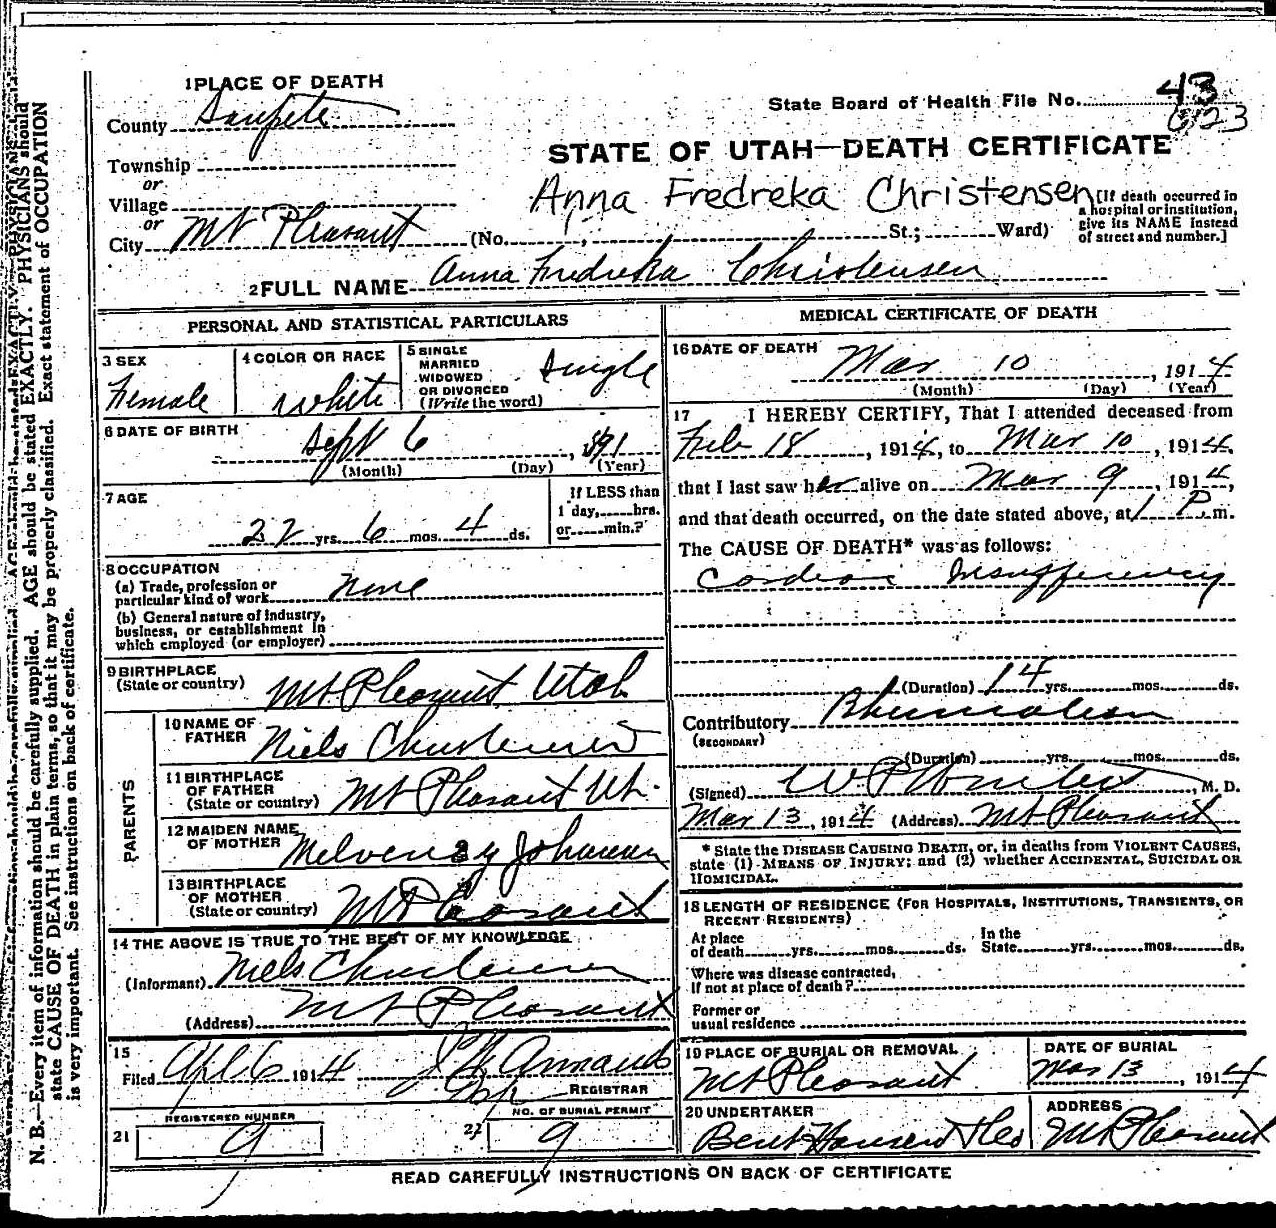 1 PLACE OF DEATH
County Sanpete
Township
or
Village
or
City Mt Pleasant (No. , St.; Ward)
State Board of Health File No. 43
6123
STATE OF UTAH—DEATH CERTIFICATE
Anna Fredreka Christensen
[If death occurred in
a hospital or institution,
give its NAME instead
of street and number.]
2 FULL NAME Anna Fredreka Christensen
PERSONAL AND STATISTICAL PARTICULARS
3 SEX
Female
4 COLOR OR RACE
White
5 SINGLE
MARRIED
WIDOWED
OR DIVORCED
(Write the word)
Single
6 DATE OF BIRTH
Sept 6, 1891
(Month) (Day) (Year)
7 AGE
22 yrs. 6 mos. 4 ds.
If LESS than
1 day, hrs.
or min.?
8 OCCUPATION
(a) Trade, profession or
particular kind of work None
(b) General nature of industry,
business, or establishment in
which employed (or employer)
9 BIRTHPLACE
(State or country) Mt Pleasant Utah
PARENTS
10 NAME OF
FATHER Niels Christensen
11 BIRTHPLACE
OF FATHER
(State or country) Mt Pleasant Ut.
12 MAIDEN NAME
OF MOTHER
13 BIRTHPLACE
OF MOTHER
(State or country) Mt Pleasant
14 THE ABOVE IS TRUE TO THE BEST OF MY KNOWLEDGE
(Informant) Niels Christensen
(Address) Mt Pleasant
15
Filed Apl 6 1914
REGISTRAR
REGISTERED NUMBER
21 9
NO. OF BURIAL PERMIT
22 9
MEDICAL CERTIFICATE OF DEATH
16 DATE OF DEATH
Mar 10, 1914
(Month) (Day) (Year)
17 I HEREBY CERTIFY, That I attended deceased from
Feb 18, 1914, to Mar 10, 1914,
that I last saw her alive on Mar 9, 1914,
and that death occurred, on the date stated above, at 1 P. m.
The CAUSE OF DEATH* was as follows:
Cardiac Insufficiency
(Duration) 14 yrs. mos. ds.
Contributory Rheumatism
(SECONDARY)
(Duration) yrs. mos. ds.
(Signed) , M. D.
Mar 13, 1914 (Address) Mt Pleasant
* State the DISEASE CAUSING DEATH, or, in deaths from VIOLENT CAUSES,
state (1) MEANS OF INJURY; and (2) whether ACCIDENTAL, SUICIDAL OR
HOMICIDAL.
18 LENGTH OF RESIDENCE (FOR HOSPITALS, INSTITUTIONS, TRANSIENTS, OR
RECENT RESIDENTS)
At place
of death yrs. mos. ds.
In the
State yrs. mos. ds.
Where was disease contracted,
if not at place of death?
Former or
usual residence
19 PLACE OF BURIAL OR REMOVAL
Mt Pleasant
DATE OF BURIAL
Mar 13, 1914
20 UNDERTAKER
Bent Hansen
ADDRESS
Mt Pleasant
READ CAREFULLY INSTRUCTIONS ON BACK OF CERTIFICATE
N. B.—Every item of information should be carefully supplied. AGE should be stated EXACTLY. PHYSICIANS should
state CAUSE OF DEATH in plain terms, so that it may be properly classified. Exact statement of OCCUPATION
is very important. See instructions on back of certificate.